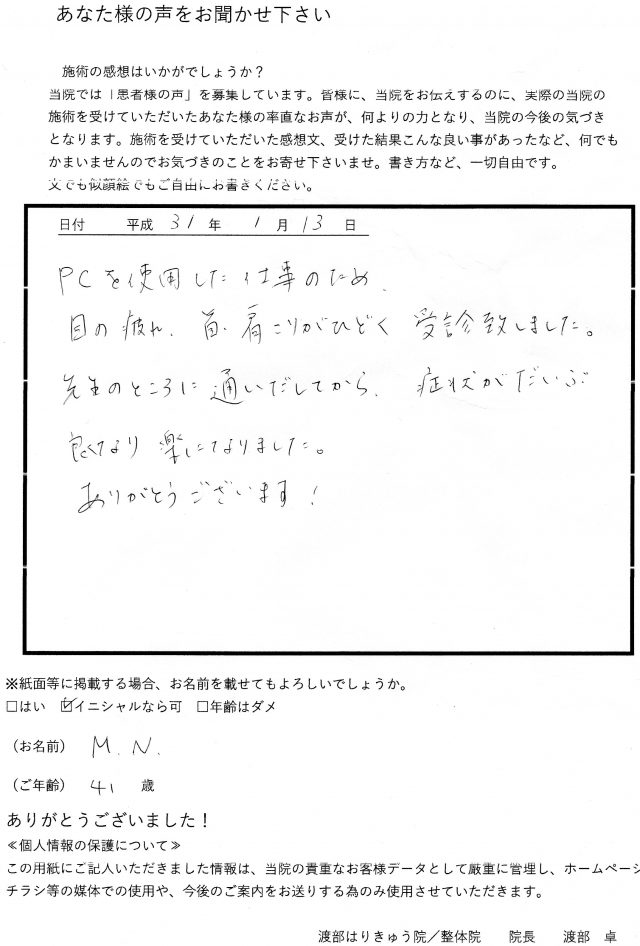 あなた様の声をお聞かせ下さい
施術の感想はいかがでしょうか？
当院では「患者様の声」を募集しています。皆様に、当院をお伝えするのに、実際の当院の
施術を受けていただいたあなた様の率直なお声が、何よりの力となり、当院の今後の気づき
となります。施術を受けていただいた感想文、受けた結果こんな良い事があったなど、何でも
かまいませんのでお気づきのことをお寄せ下さいませ。書き方など、一切自由です。
文でも似顔絵でもご自由にお書きください。
日付　平成 31 年 1 月 13 日
PCを使用した仕事のため、
目の疲れ、首、肩こりがひどく 受診致しました。
先生のところに通いだしてから、症状がだいぶ
良くなり楽になりました。
ありがとうございます！
※紙面等に掲載する場合、お名前を載せてもよろしいでしょうか。
□はい ☑イニシャルなら可 □年齢はダメ
（お名前） M. N.
（ご年齢） 41 歳
ありがとうございました！
≪個人情報の保護について≫
この用紙にご記入いただきました情報は、当院の貴重なお客様データとして厳重に管理し、ホームページ
チラシ等の媒体での使用や、今後のご案内をお送りする為のみ使用させていただきます。
渡部はりきゅう院／整体院　院長　渡部　卓